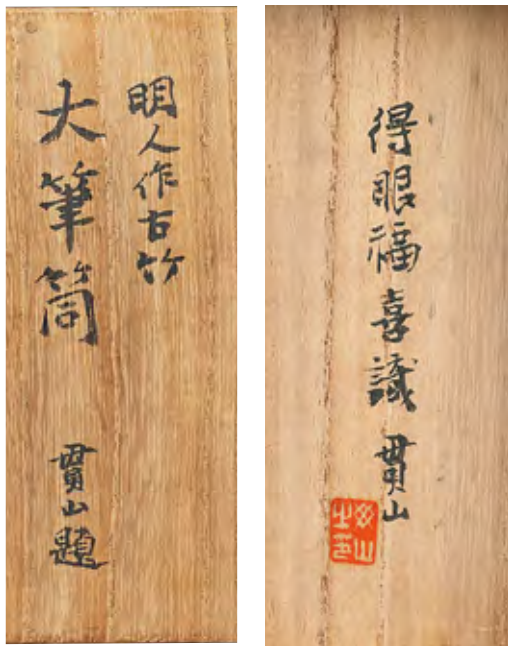 明人作古竹
大筆筒 貫山題
得眼福喜識 貫山